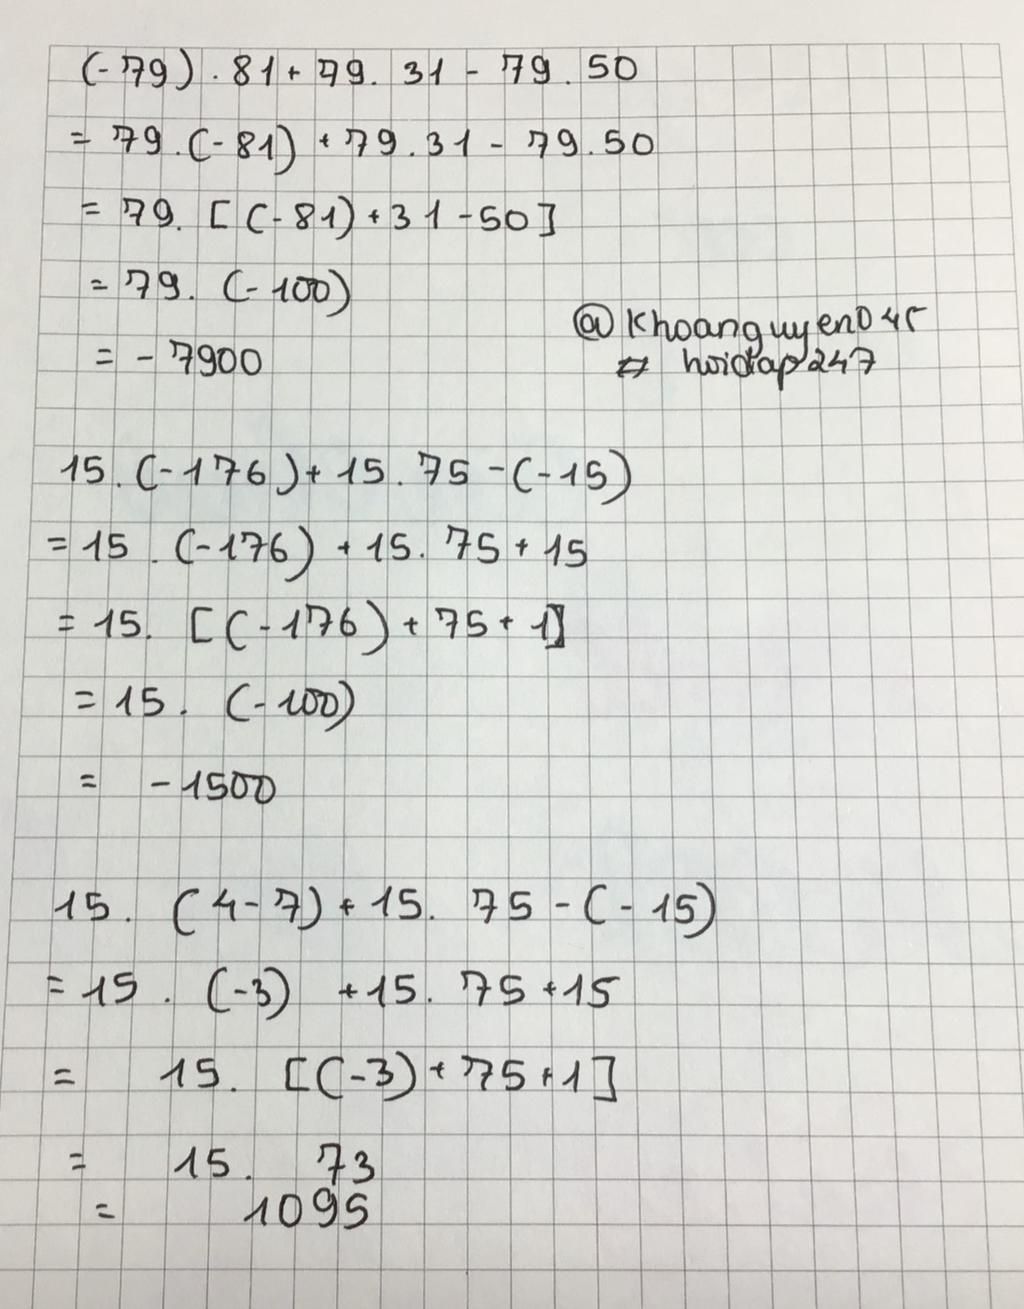 (-79).81+79.31-79.50
=79.(-81)+79.31-79.50
=79.[(-81)+31-50]
=79.(-100)
@Khoanguyen045
=-7900
# hoidap247
15.(-176)+15.75-(-15)
=15.(-176)+15.75+15
=15.[(-176)+75+1]
=15.(-100)
=-1500
15.(4-7)+15.75-(-15)
=15.(-3)+15.75+15
=15.[(-3)+75+1]
=15.73
=1095